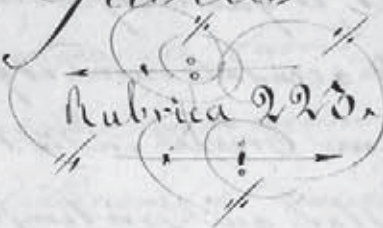 Rubrica 223.